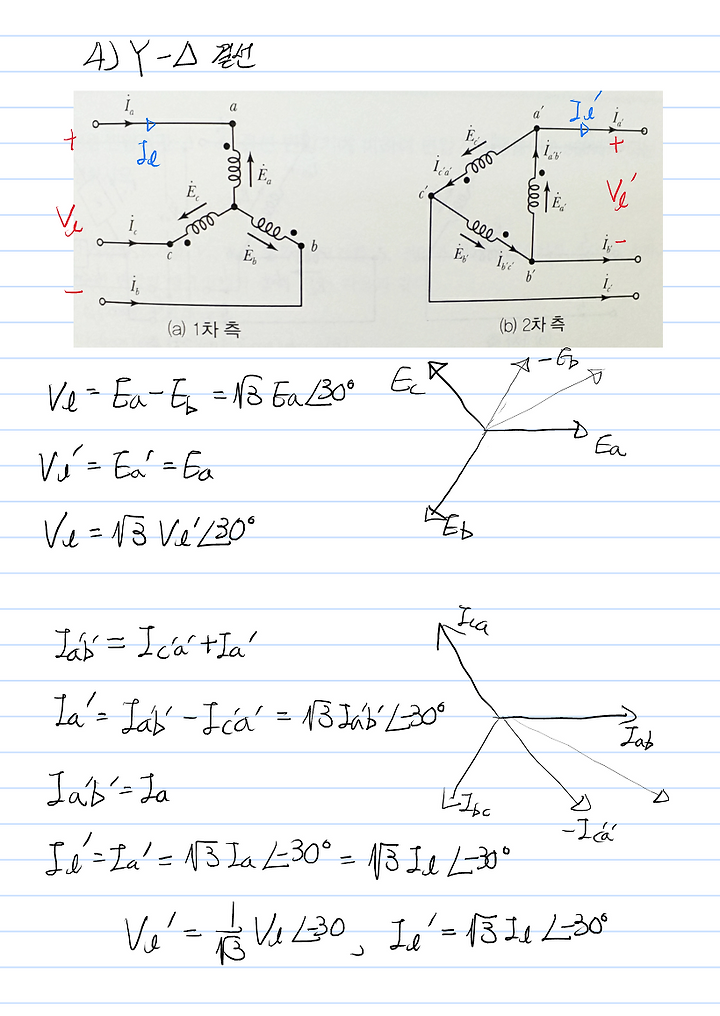 4) Y-Δ 결선
İa
a
Il
+
Ėa
Ėc
Vl
İc
c
Ėb
b
-
İb
(a) 1차 측
a′
Il′
İa′
+
Ėc′
İc′a′
İa′b′
c′
Ėa′
Vl′
Ėb′
İb′c′
b′
İb′
-
İc′
(b) 2차 측
Vl = Ea-Eb = √3 Ea∠30°
Vl′ = Ea′ = Ea
Vl = √3 Vl′∠30°
Ec
-Eb
Ea
Eb
Ia′b′ = Ic′a′+Ia′
Ia′ = Ia′b′ - Ic′a′ = √3 Ia′b′∠-30°
Ia′b′ = Ia
Ica
Iab
Ibc
-Ic′a′
Il′ = Ia′ = √3 Ia∠-30° = √3 Il∠-30°
Vl′ = 1/√3 Vl∠-30, Il′ = √3 Il∠-30°